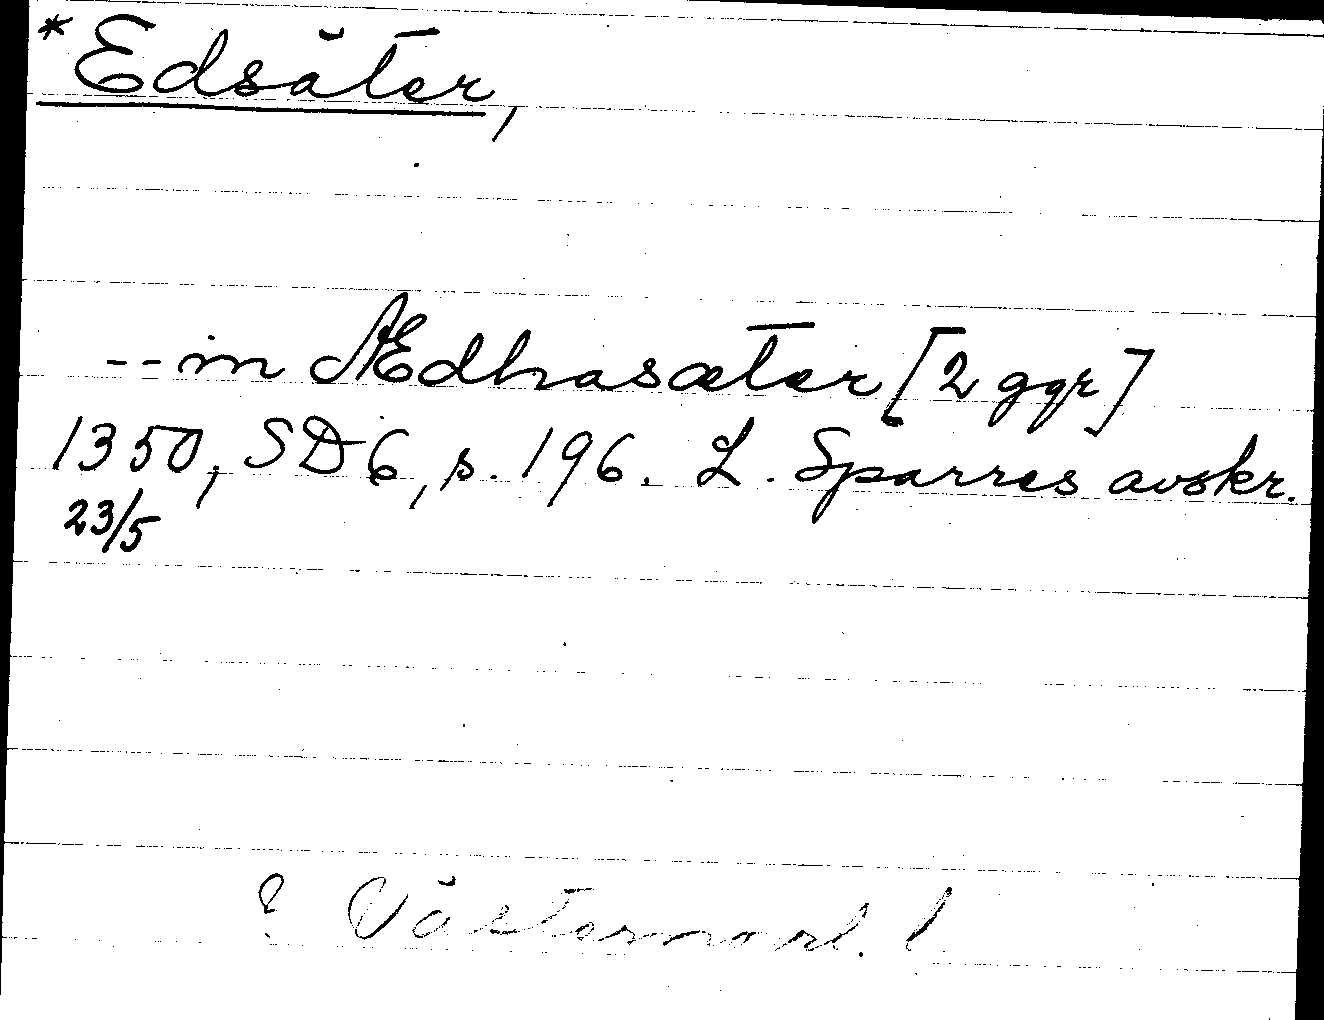 *Edsäter,
-- in Ædhasæter [2 ggr]
1350, SD 6, s. 196. L. Sparres avskr.
23/5
? Västernorrl. l